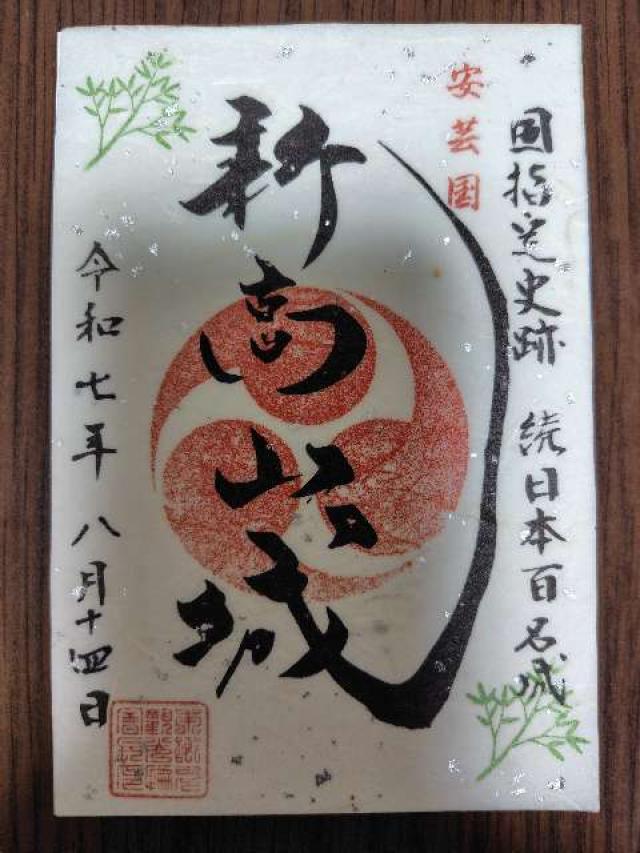 国指定史跡 続日本百名城
安芸国
新高山城
令和七年八月十四日